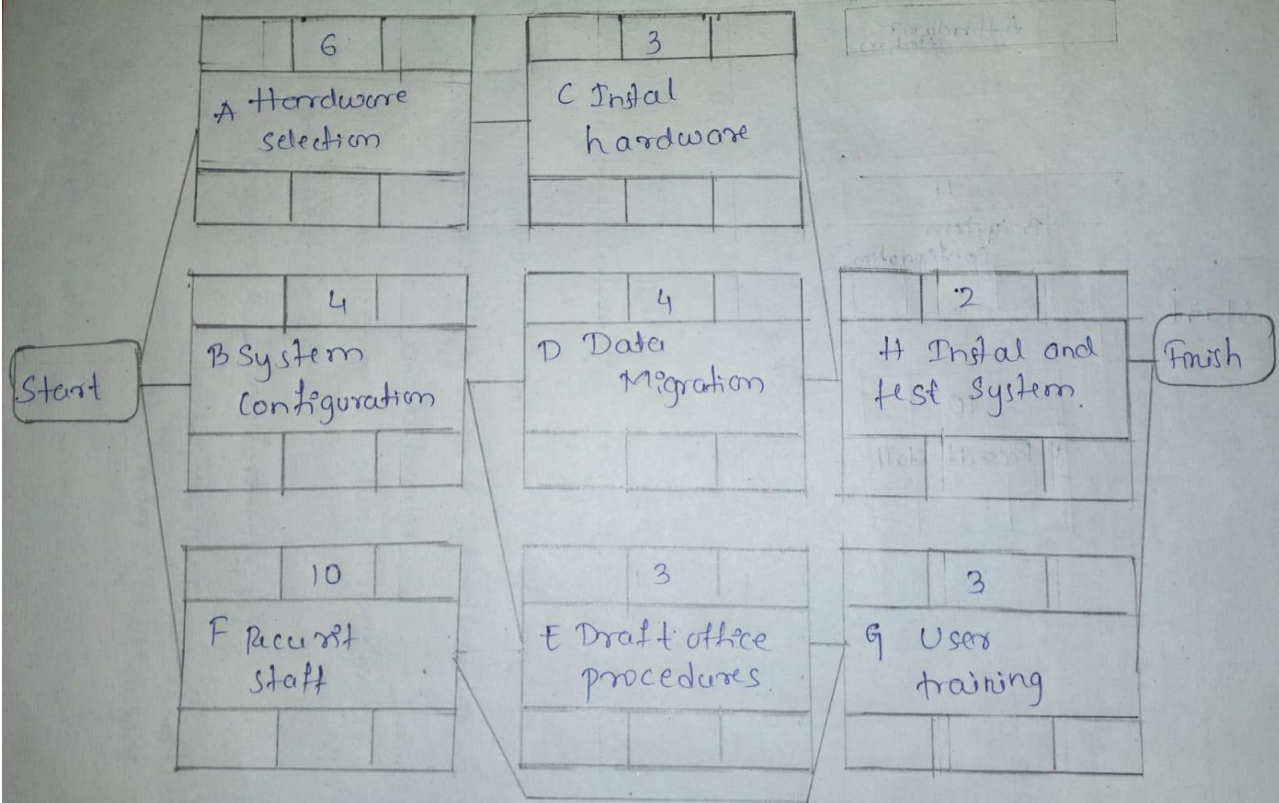 6
3
A Hardware
selection
C Instal
hardware
4
4
2
Start
B System
Configuration
D Data
Migration
H Instal and
test System.
Finish
10
3
3
F Recurit
Staff
E Draft office
procedures.
G User
training